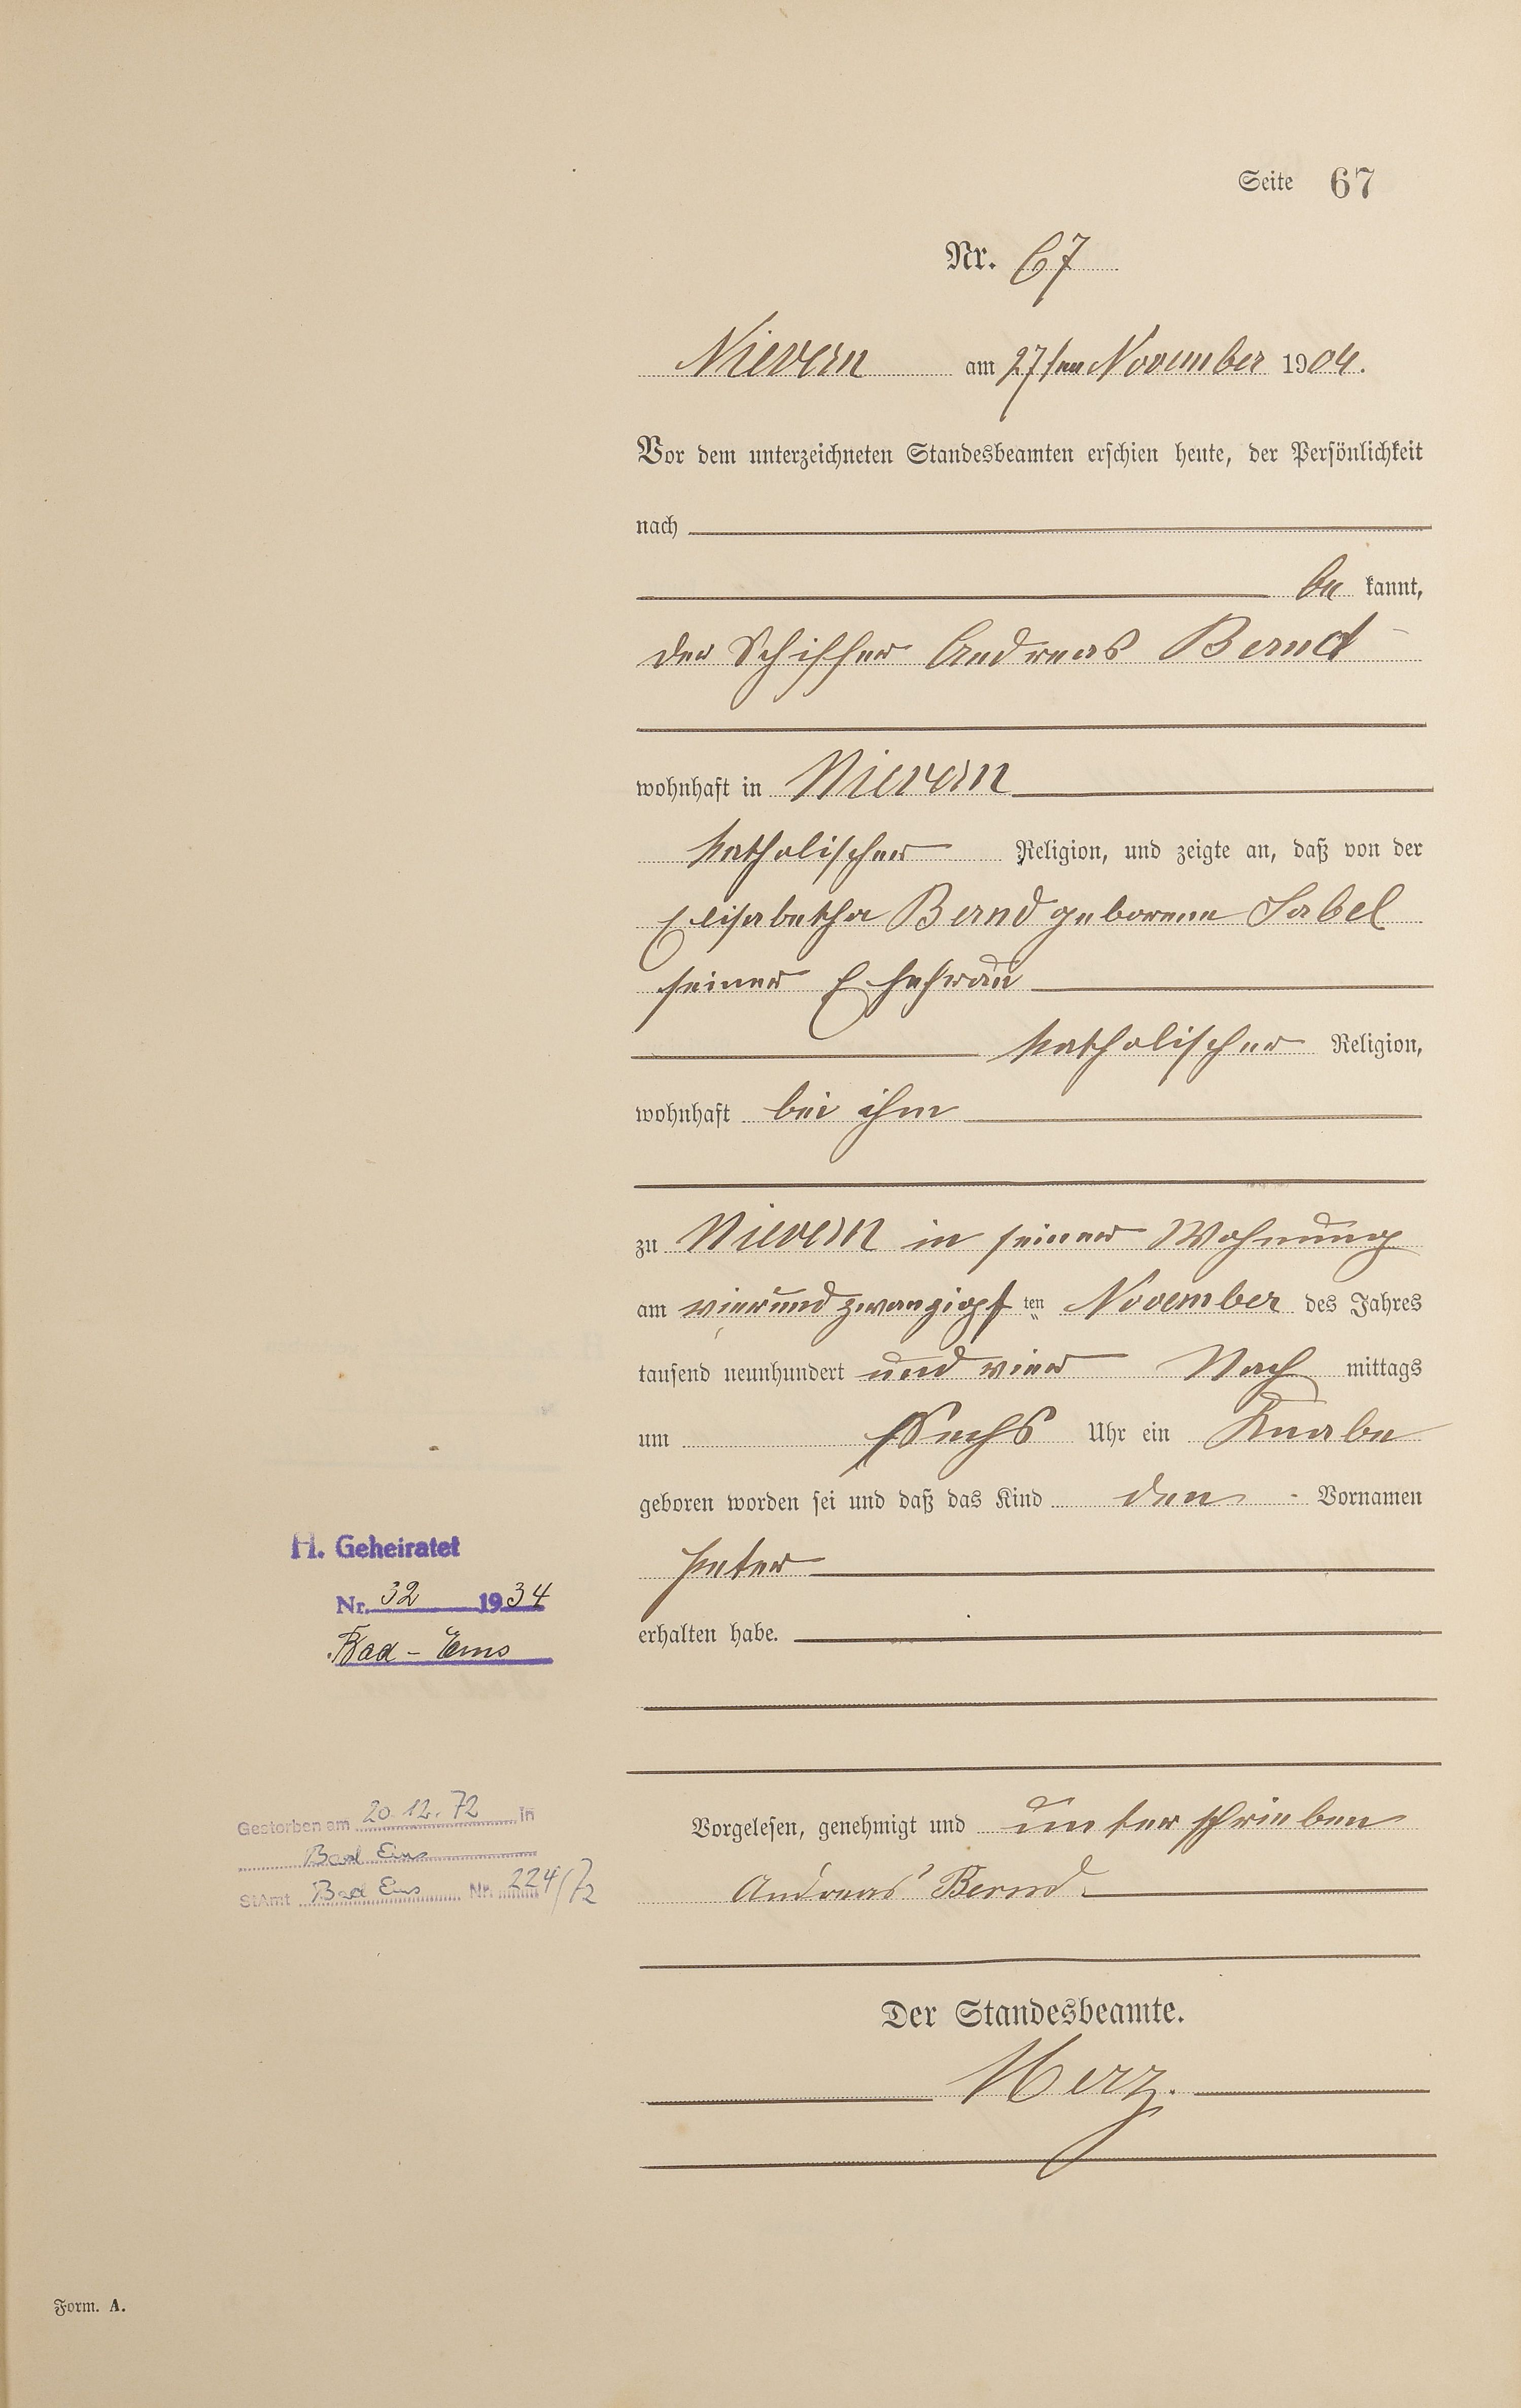 Seite 67
Nr. 67
Nievern am 27ten November 1904.
Vor dem unterzeichneten Standesbeamten erschien heute, der Persönlichkeit
nach
be kannt,
der Schiffer Andreas Bernd
wohnhaft in Nievern
katholischer Religion, und zeigte an, daß von der
Elisabetha Bernd geborene Sabel
seiner Ehefrau
katholischer Religion,
wohnhaft bei ihm
zu Nievern in seiner Wohnung
am vierundzwanzigsten November des Jahres
tausend neunhundert und vier Nach mittags
um Sechs Uhr ein Knabe
geboren worden sei und daß das Kind den Vornamen
H. Geheiratet
Peter
Nr. 32 1934
erhalten habe.
Bad-Ems
Gestorben am 20.12.72 in
Vorgelesen, genehmigt und unterschrieben
Bad Ems
StAmt Bad Ems Nr. 224/72
Andreas Bernd
Der Standesbeamte.
Herz.
Form. A.